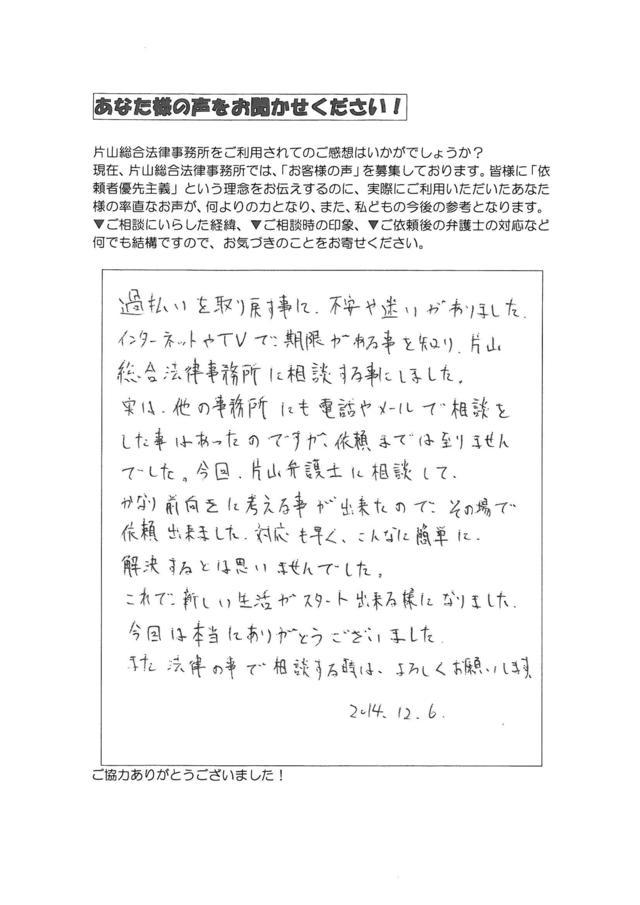 あなた様の声をお聞かせください！
片山総合法律事務所をご利用されてのご感想はいかがでしょうか？
現在、片山総合法律事務所では、「お客様の声」を募集しております。皆様に「依
頼者優先主義」という理念をお伝えするのに、実際にご利用いただいたあなた
様の率直なお声が、何よりの力となり、また、私どもの今後の参考となります。
▼ご相談にいらした経緯、▼ご相談時の印象、▼ご依頼後の弁護士の対応など
何でも結構ですので、お気づきのことをお寄せください。
過払いを取り戻す事に、不安や迷いがありました。
インターネットやTVで、期限がある事を知り、片山
総合法律事務所に相談する事にしました。
実は、他の事務所にも電話やメールで相談を
した事はあったのですが、依頼までは至りません
でした。今回、片山弁護士に相談して、
かなり前向きに考える事が出来たので、その場で
依頼出来ました。対応も早く、こんなに簡単に、
解決するとは思いませんでした。
これで、新しい生活がスタート出来る様になりました。
今回は本当にありがとうございました。
また法律の事で相談する時は、よろしくお願いします。
2014.12.6.
ご協力ありがとうございました！